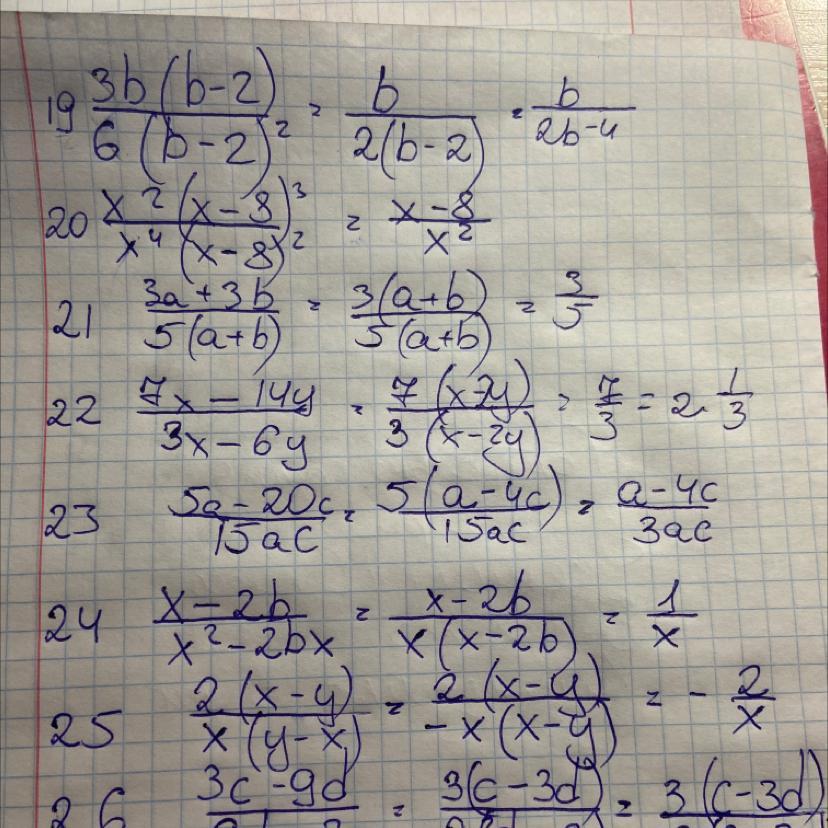 19 3b(b-2)/6(b-2)² = b/2(b-2) = b/2b-4
20 x²(x-8)³/x⁴(x-8)² = x-8/x²
21 3a+3b/5(a+b) = 3(a+b)/5(a+b) = 3/5
22 7x-14y/3x-6y = 7(x-2y)/3(x-2y) = 7/3 = 2 1/3
23 5a-20c/15ac = 5(a-4c)/15ac = a-4c/3ac
24 x-2b/x²-2bx = x-2b/x(x-2b) = 1/x
25 2(x-y)/x(y-x) = 2(x-y)/-x(x-y) = - 2/x
26 3c-9d = 3(c-3d) = 3(c-3d)